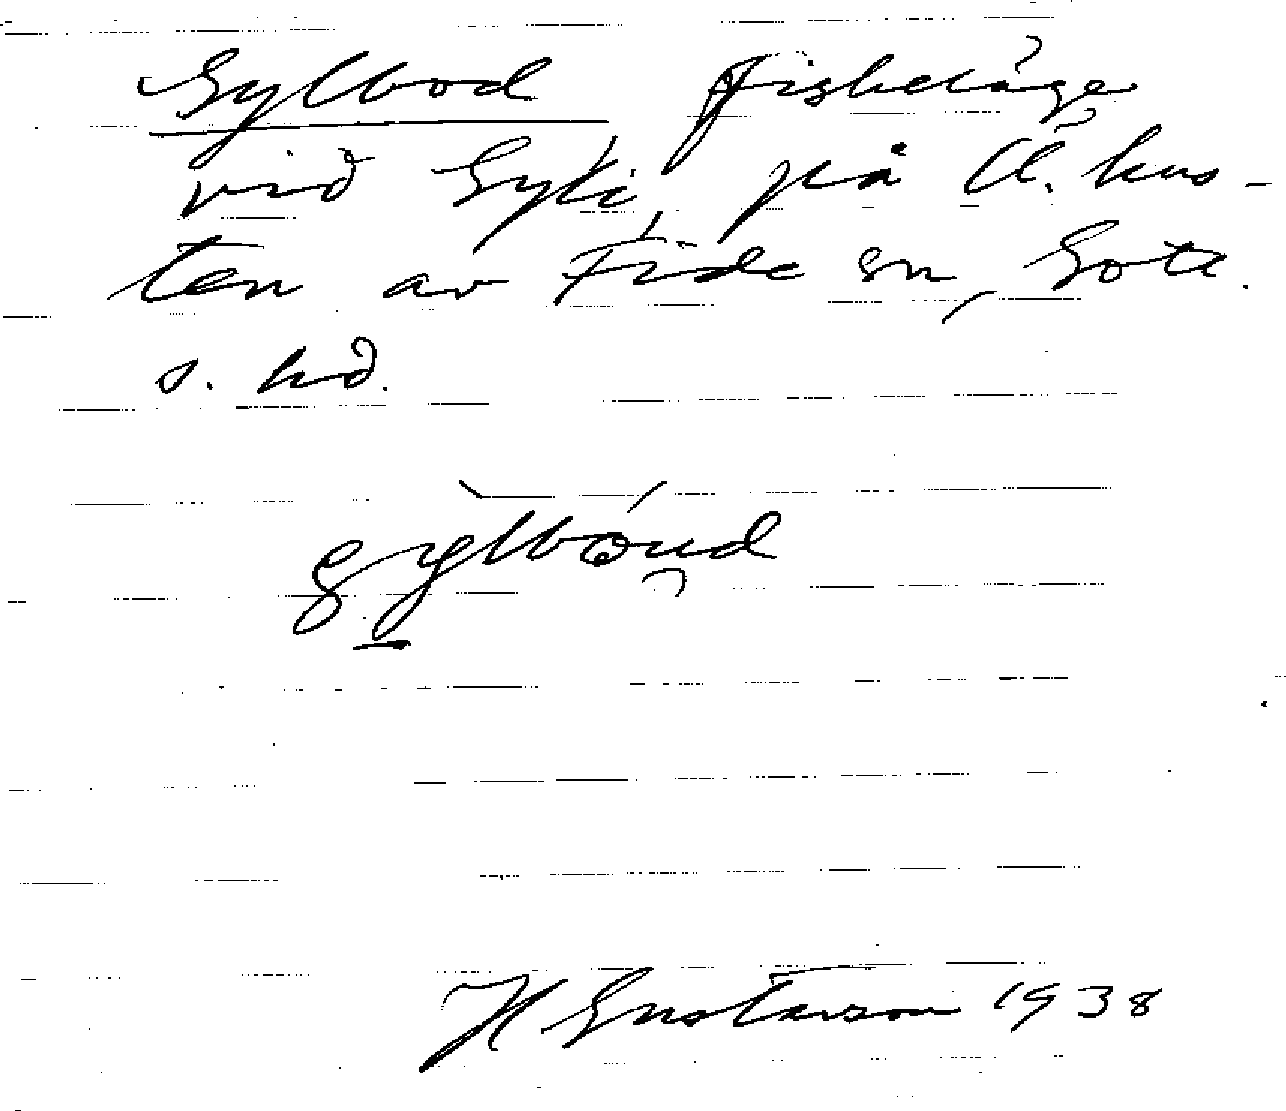 Gylbod fiskeläge
vid Gyli, på Ö. kus-
ten av Fide sn, Gotl.
s. hd.
gylbóud
H Gustavson 1938